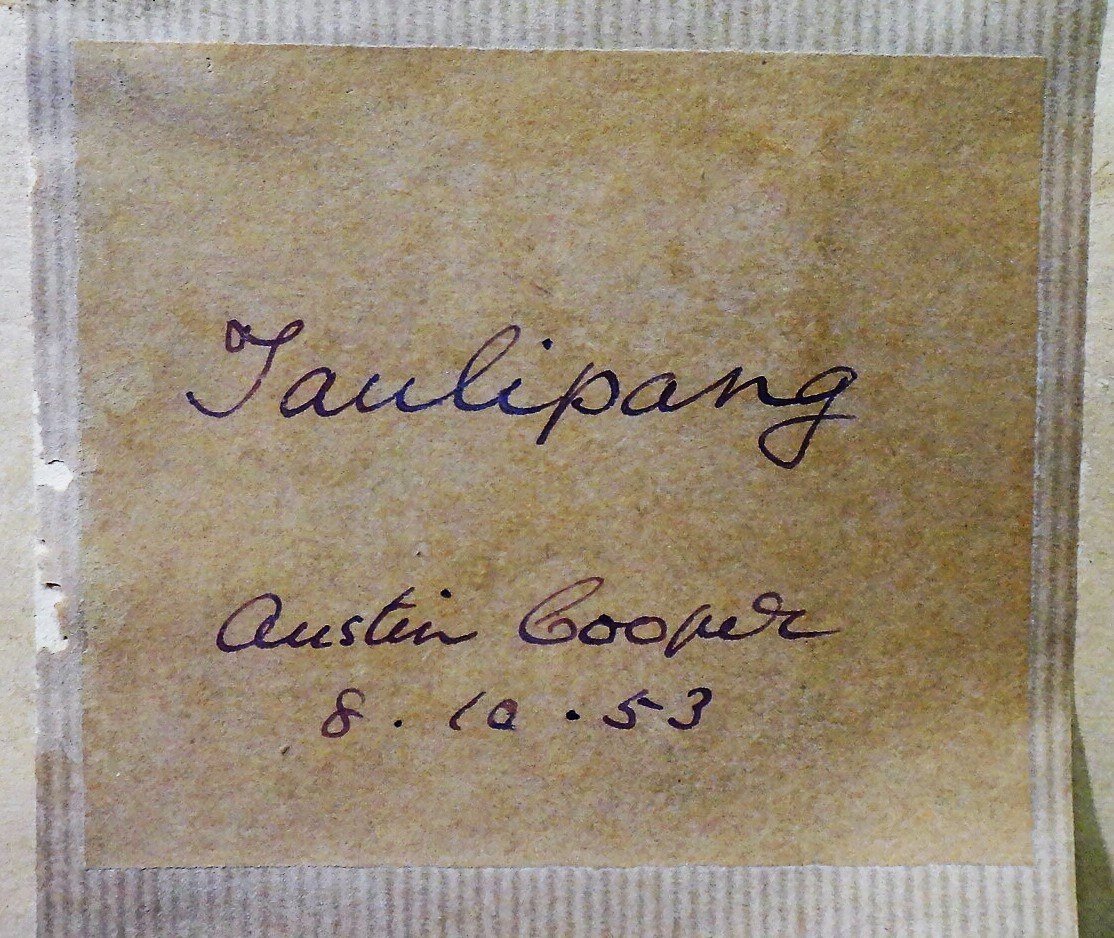 Taulipang
Austin Cooper
8. 10. 53